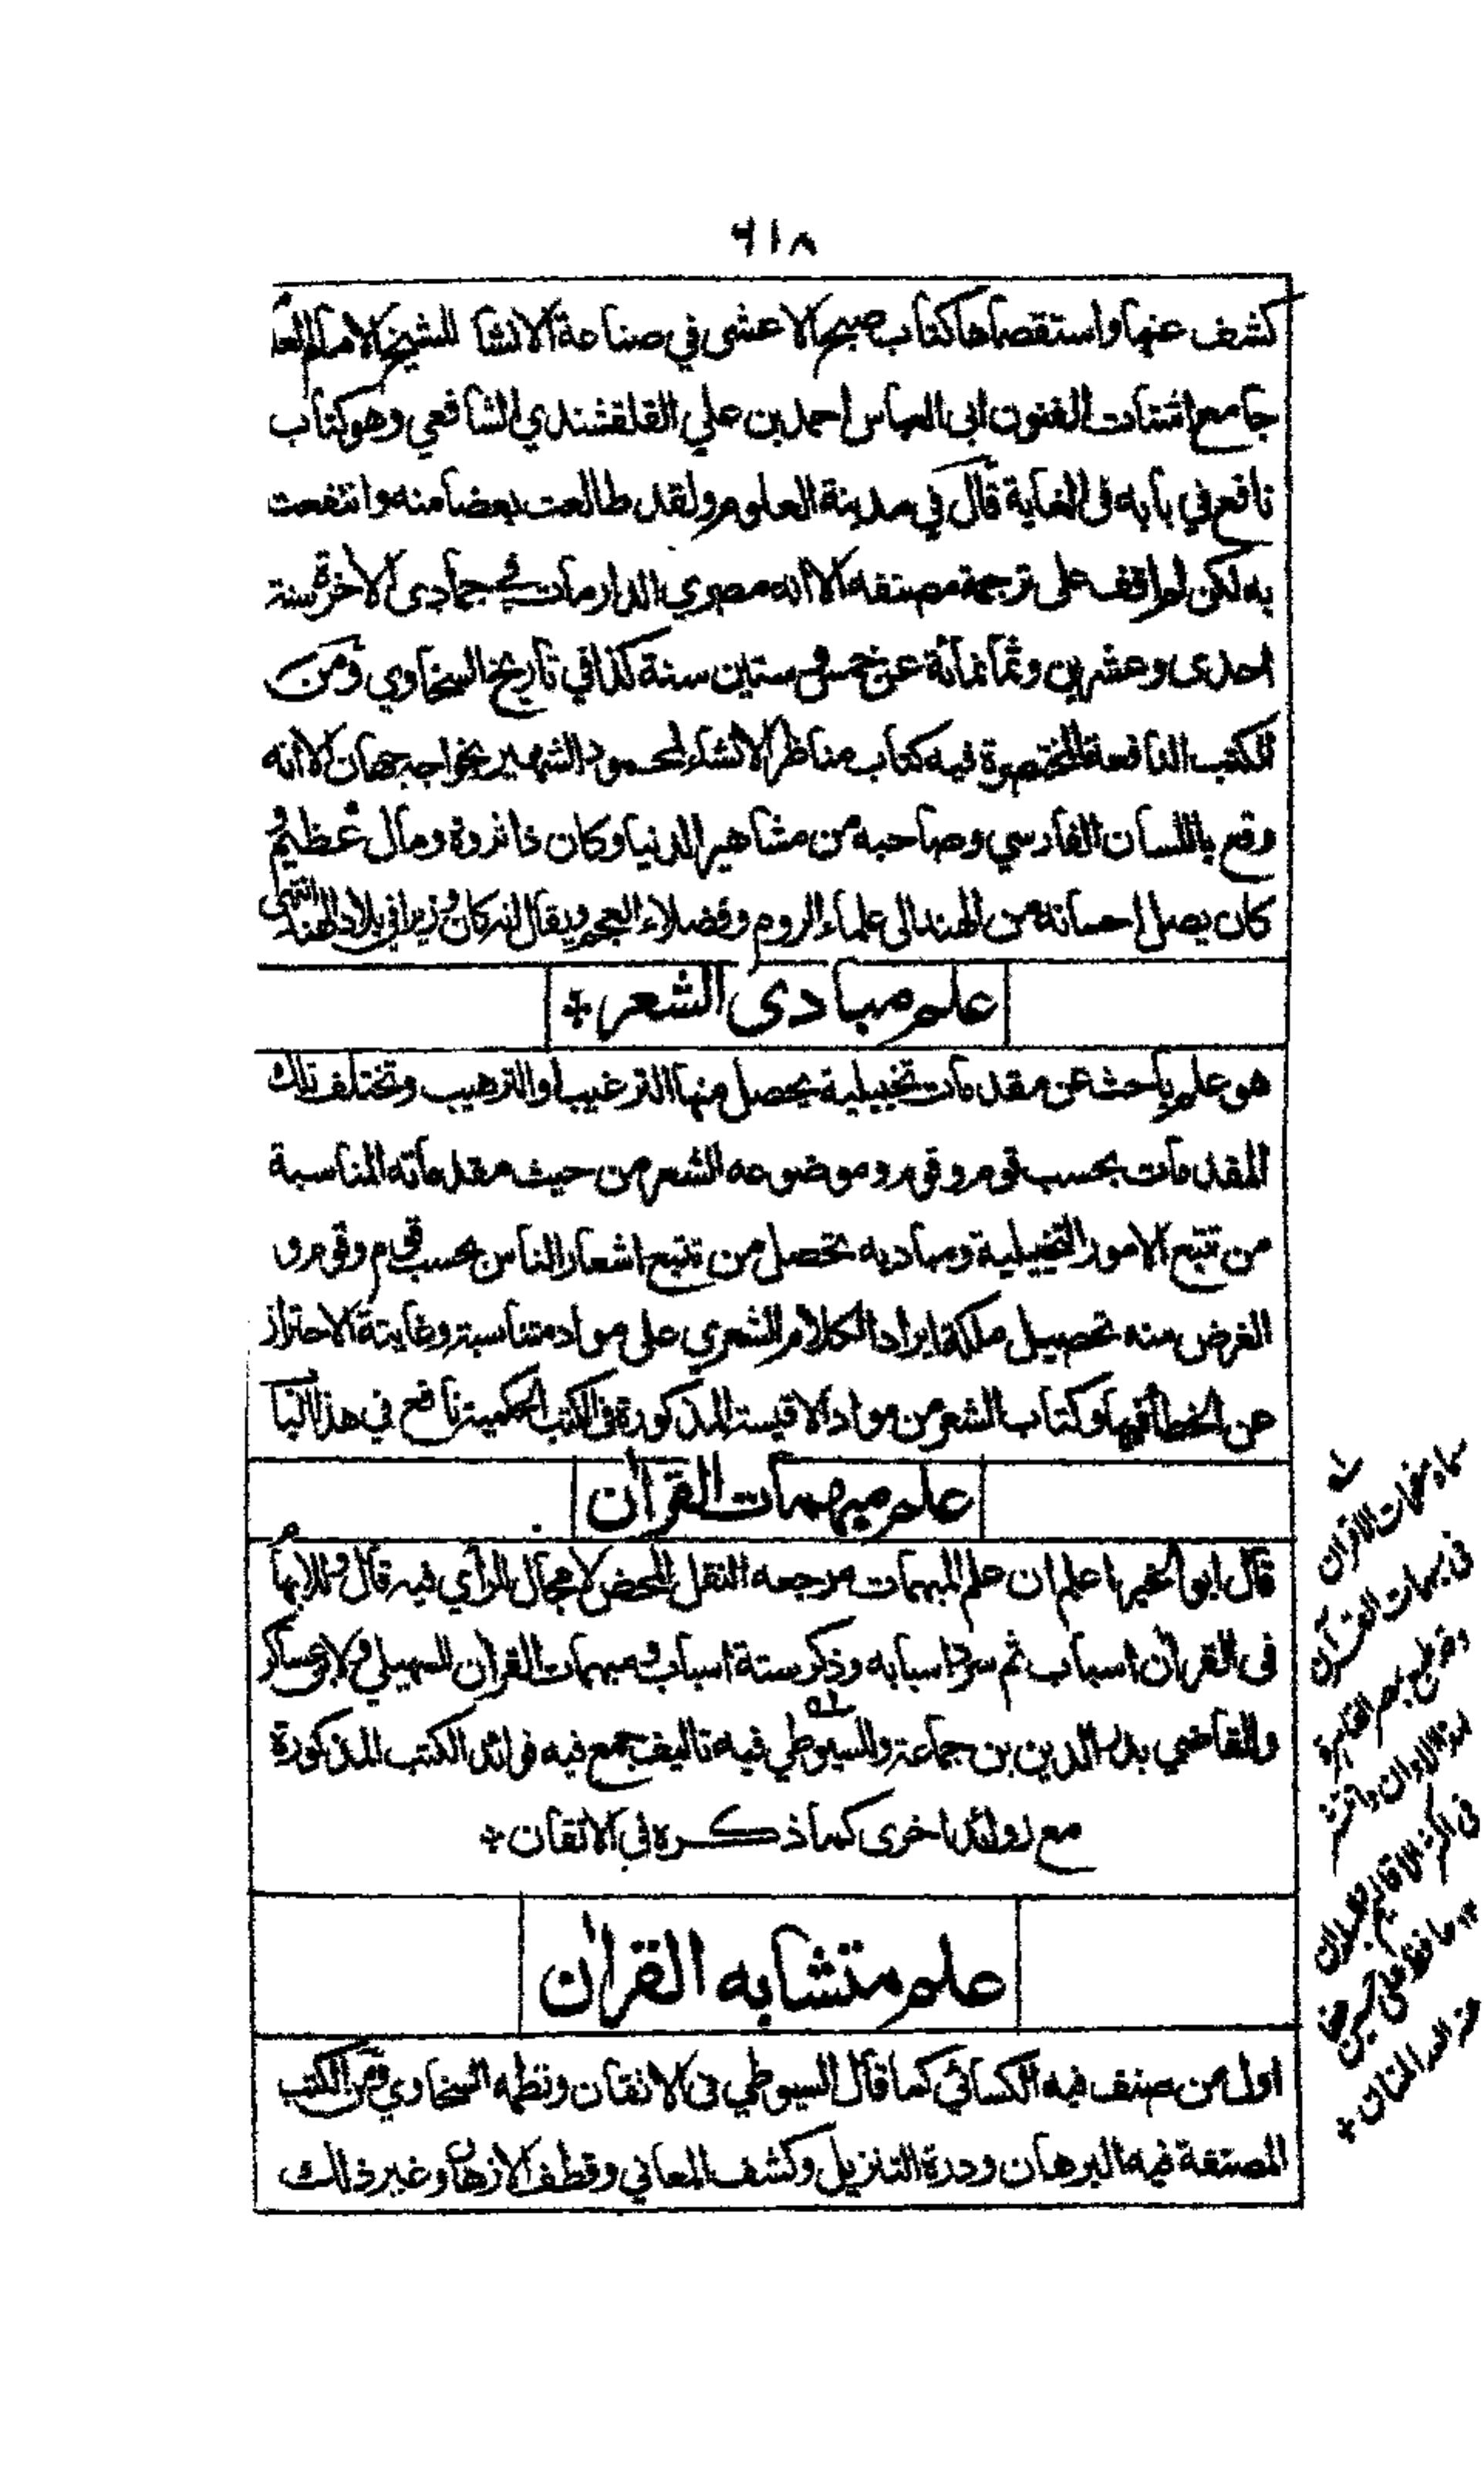 ٦١٨
كشف عنها واستقصاها كتاب صبح الاعشى في صناعة الانشا للشيخ الامام العا
جامع اشتات الفنون ابى العباس احمد بن علي القلقشندي الشافعي وهو كتاب
نافع في بابه فى الغاية قال في مدينة العلوم ولقد طالعت بعضا منه وانتفعت
به لكن لم اقف على ترجمة مصنفه الا انه مصري الدار مات في جمادى الاخرة سنة
احدى وعشرين وثمانمائة عن خمس وستين سنة كذا في تاريخ السخاوي ومن
الكتب النافعة المختصرة فيه كتاب مناظر الانشاء لمحمود الشهير بخواجه جهان الا انه
وقع باللسان الفارسي وصاحبه من مشاهير الدنيا وكان ذا ثروة ومال عظيم
كان يصل احسانه من الهند الى علماء الروم وفضلاء العجم ويقال انه كان وزيرا في بلاد الهند انتهى
علم مبادى الشعر *
هو علم باحث عن مقدمات تخييلية يحصل منها الترغيب او الترهيب وتختلف تلك
المقدمات بحسب قوم وقوم وموضوعه الشعر من حيث مقدماته المناسبة
من تتبع الامور التخييلية ومباديه تحصل من تتبع اشعار الناس بحسب قوم وقوم و
الغرض منه تحصيل ملكة ايراد الكلام الشعري على مواد متناسبة وغايتة الاحتراز
عن الخطأ فيها وكتاب الشعر من مواد الاقيسة المذكورة فى الكتب الحكمية نافع في هذا البا
علم مبهمات القران
قال ابو الخير اعلم ان علم المبهمات مرجعه النقل المحض لا مجال للرأي فيه قال وللابها
فى القرآن اسباب ثم سرد اسبابه وذكر ستة اسباب ومبهمات القران للسهيلي ولابن عساكر
والقاضي بدر الدين بن جماعة وللسيوطي فيه تاليف جمع فيه فوائد الكتب المذكورة
مع زوائد اخرى كما ذكره في الاتقان *
علم متشابه القران
اول من صنف فيه الكسائي كما قال السيوطي فى الاتقان ونظمه السخاوي ومن الكتب
المصنفة فيه البرهان ودرة التنزيل وكشف المعاني وقطف الازهار وغير ذلك
سماه مفحمات الاقران
فى مبهمات القرآن
وقد طبع بمصر القاهرة